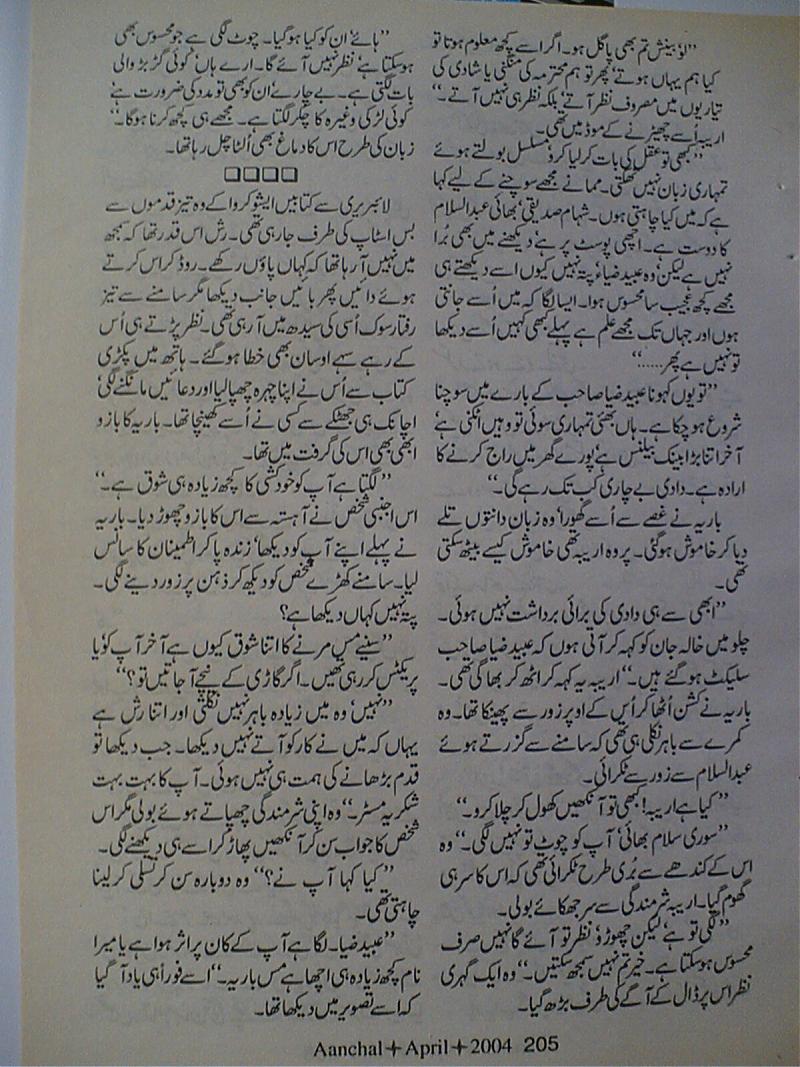 ”لو بینش تم بھی پاگل ہو۔ اگر اسے کچھ معلوم ہوتا تو
کیا ہم یہاں ہوتے‘ پھر تو ہم محترمہ کی منگنی یا شادی کی
تیاریوں میں مصروف نظر آتے‘ بلکہ نظر ہی نہیں آتے۔“
اریبہ اُسے چھیڑنے کے موڈ میں تھی۔
”کبھی تو عقل کی بات کر لیا کرو‘ مسلسل بولتے ہوئے
تمہاری زبان نہیں تھکتی۔ مما نے مجھے سوچنے کے لیے کہا
ہے کہ میں کیا چاہتی ہوں۔ شہام صدیقی‘ بھائی عبدالسلام
کا دوست ہے۔ اچھی پوسٹ پر ہے‘ دیکھنے میں بھی بُرا
نہیں ہے لیکن‘ وہ عبید ضیاء‘ پتہ نہیں کیوں اسے دیکھتے ہی
مجھے کچھ عجیب سا محسوس ہوا۔ ایسا لگا کہ میں اُسے جانتی
ہوں اور جہاں تک مجھے علم ہے پہلے کبھی کہیں اُسے دیکھا
تو نہیں ہے پھر.....“
”تو یوں کہو نا عبید ضیا صاحب کے بارے میں سوچنا
شروع ہو چکا ہے۔ ہاں بھئی تمہاری سوئی تو وہیں اٹکنی ہے‘
آخر اتنا بڑا بینک بیلنس ہے‘ پورے گھر میں راج کرنے کا
ارادہ ہے۔ دادی بے چاری کب تک رہے گی۔“
باریہ نے غصے سے اُسے گھورا‘ وہ زبان دانتوں تلے
دبا کر خاموش ہو گئی۔ پر وہ اریبہ تھی خاموش کیسے بیٹھ سکتی
تھی۔
”ابھی سے ہی دادی کی برائی برداشت نہیں ہوئی۔
چلو میں خالہ جان کو کہہ کر آتی ہوں کہ عبید ضیا صاحب
سلیکٹ ہو گئے ہیں۔“ اریبہ یہ کہہ کر اٹھ کر بھاگی تھی۔
باریہ نے کشن اُٹھا کر اُس کے اوپر زور سے پھینکا تھا۔ وہ
کمرے سے باہر نکلی ہی تھی کہ سامنے سے گزرتے ہوئے
عبدالسلام سے زور سے ٹکرائی۔
”کیا ہے اریبہ! کبھی تو آنکھیں کھول کر چلا کرو۔“
”سوری سلام بھائی‘ آپ کو چوٹ تو نہیں لگی۔“ وہ
اس کے کندھے سے بُری طرح ٹکرائی تھی کہ اس کا سر ہی
گھوم گیا۔ اریبہ شرمندگی سے سر جھکائے بولی۔
”لگی تو ہے‘ لیکن چھوڑو‘ نظر تو آئے گا نہیں صرف
محسوس ہو سکتا ہے۔ خیر تم نہیں سمجھ سکتیں۔“ وہ ایک گہری
نظر اس پر ڈال کے آگے کی طرف بڑھ گیا۔
”ہائے‘ ان کو کیا ہو گیا۔ چوٹ لگی ہے جو محسوس بھی
ہو سکتا ہے‘ نظر نہیں آئے گا۔ ارے ہاں‘ کوئی گڑبڑ والی
بات لگتی ہے۔ بے چارے‘ ان کو بھی تو مدد کی ضرورت ہے‘
کوئی لڑکی وغیرہ کا چکر لگتا ہے۔ مجھے ہی کچھ کرنا ہو گا۔“
زبان کی طرح اس کا دماغ بھی اُلٹا چل رہا تھا۔
❑❑❑❑
لائبریری سے کتابیں ایشو کروا کے وہ تیز قدموں سے
بس اسٹاپ کی طرف جا رہی تھی۔ رش اس قدر تھا کہ سمجھ
میں نہیں آ رہا تھا کہ کہاں پاؤں رکھے۔ روڈ کراس کرتے
ہوئے دائیں پھر بائیں جانب دیکھا مگر سامنے سے تیز
رفتار سوک اُسی کی سیدھ میں آ رہی تھی۔ نظر پڑتے ہی اُس
کے رہے سہے اوسان بھی خطا ہو گئے۔ ہاتھ میں پکڑی
کتاب سے اُس نے اپنا چہرہ چھپا لیا اور دعائیں مانگنے لگی
اچانک ہی جھٹکے سے کسی نے اُسے کھینچا تھا۔ باریہ کا بازو
ابھی بھی اس کی گرفت میں تھا۔
”لگتا ہے آپ کو خودکشی کا کچھ زیادہ ہی شوق ہے۔“
اس اجنبی شخص نے آہستہ سے اس کا بازو چھوڑ دیا۔ باریہ
نے پہلے اپنے آپ کو دیکھا‘ زندہ پا کر اطمینان کا سانس
لیا۔ سامنے کھڑے شخص کو دیکھ کر ذہن پر زور دینے لگی۔
پتہ نہیں کہاں دیکھا ہے؟
”سنیے مس مرنے کا اتنا شوق کیوں ہے آخر آپ کو‘ یا
پریکٹس کر رہی تھیں۔ اگر گاڑی کے نیچے آ جاتیں تو؟“
”نہیں‘ وہ میں زیادہ باہر نہیں نکلتی اور اتنا رش ہے
یہاں کہ میں نے کار کو آتے نہیں دیکھا۔ جب دیکھا تو
قدم بڑھانے کی ہمت ہی نہیں ہوئی۔ آپ کا بہت بہت
شکریہ مسٹر۔“ وہ اپنی شرمندگی چھپاتے ہوئے بولی مگر اس
شخص کا جواب سن کر آنکھیں پھاڑ کر اسے ہی دیکھنے لگی۔
”کیا کہا آپ نے؟“ وہ دوبارہ سن کر تسلی کر لینا
چاہتی تھی۔
”عبید ضیا۔ لگتا ہے آپ کے کان پر اثر ہوا ہے یا میرا
نام کچھ زیادہ ہی اچھا ہے مس باریہ۔“ اسے فوراً ہی یاد آ گیا
کہ اسے تصویر میں دیکھا تھا۔
Aanchal✦April✦2004 205